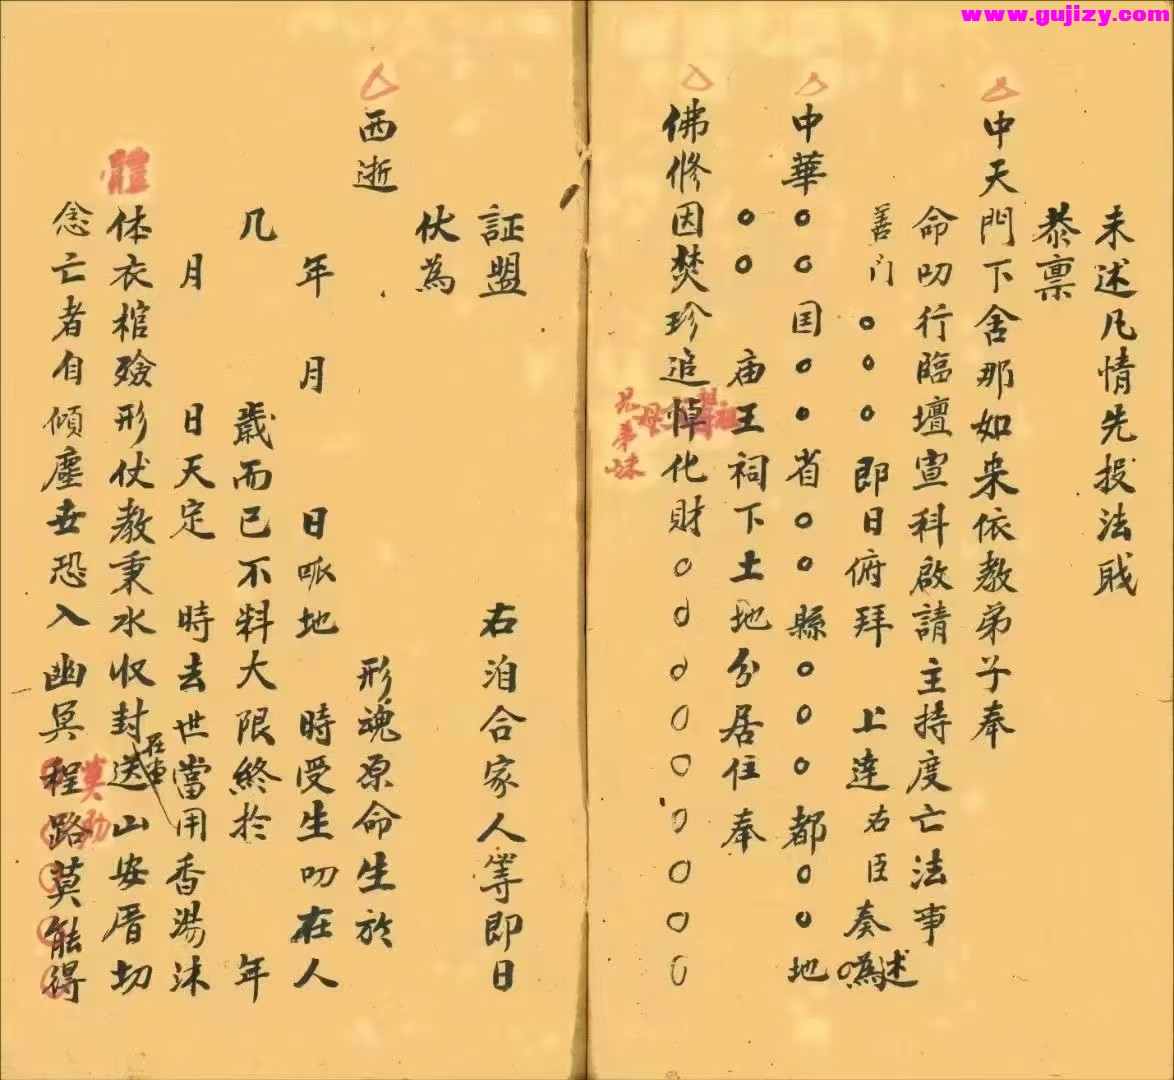 www.gujizy.com
未述凡情先投法戝
恭禀
中天門下舍那如来依教弟子奉
命叨行臨壇宣科啟請主持度亡法事
善门○○○即日俯拜 上達右臣奏為述
中華○○国○○省○○縣○○○都○○地
○○庙王祠下土地分居住奉
佛修因焚珍追悼化財○○○○○○○○○
兄弟妹
母
祖
証盟 右洎合家人等即日
伏為
西逝 形魂原命生於
年 月 日呱地 時受生叨在人
几 歲而已不料大限終於 年
月 日天定 時去世當用香湯沐
體
体衣棺殮形仗教秉水収封送山安厝切
念亡者自傾塵世恐入幽冥程路莫能得
莫助